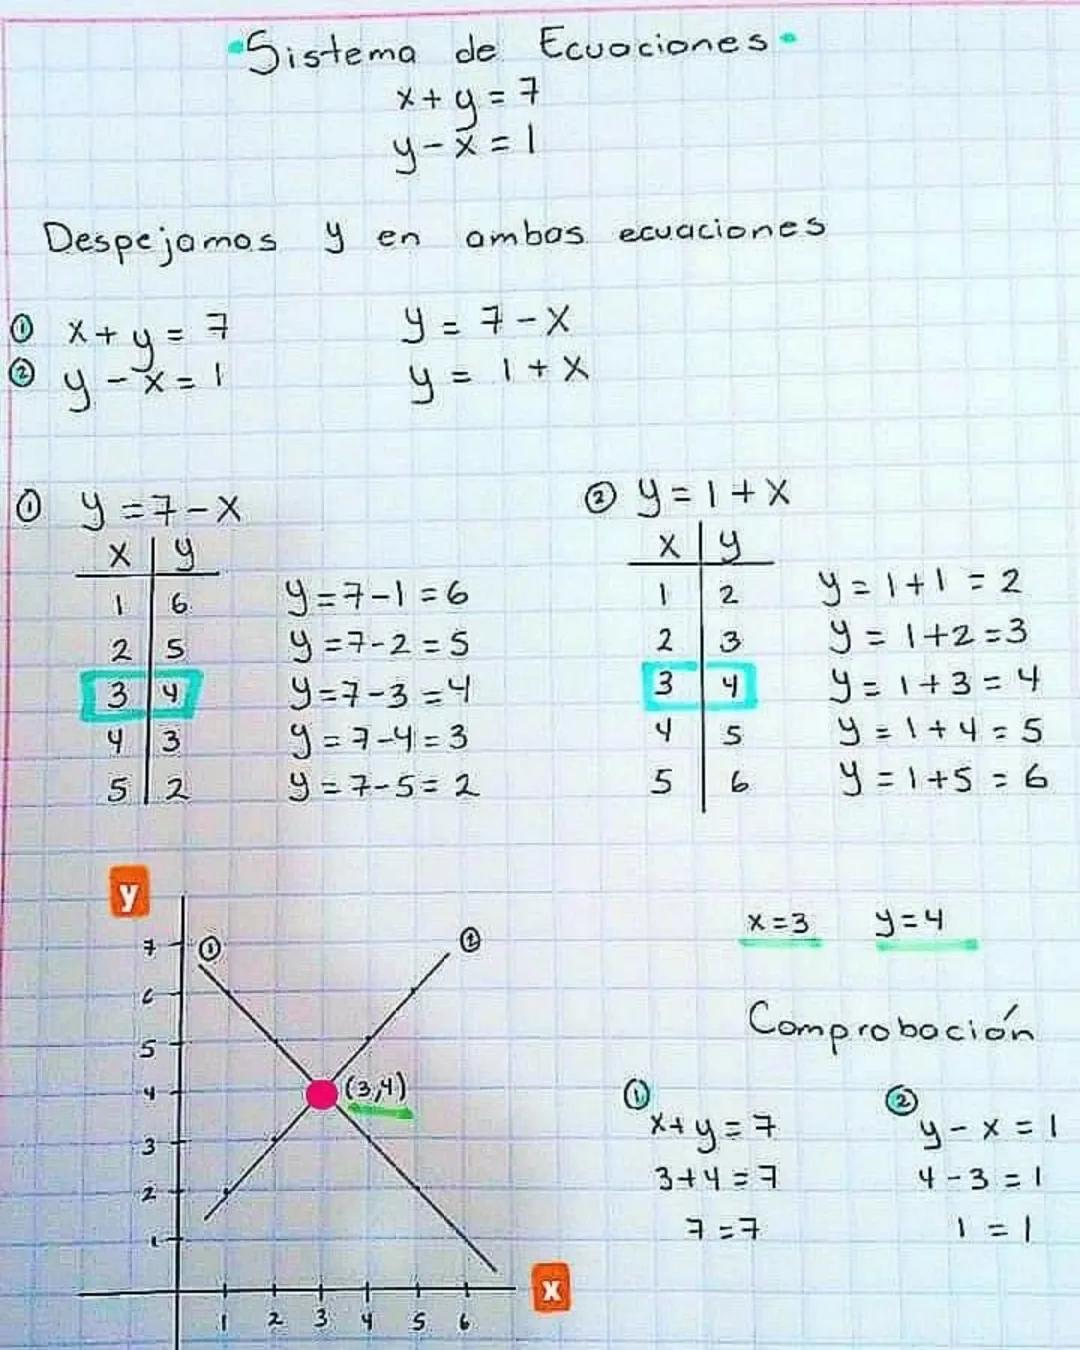 Sistema de Ecuaciones
x + y = 7
y - x = 1
Despejamos y en ambas ecuaciones
① x + y = 7 y = 7 - x
② y - x = 1 y = 1 + x
① y = 7 - x
x y
1 6 y = 7 - 1 = 6
2 5 y = 7 - 2 = 5
3 4 y = 7 - 3 = 4
4 3 y = 7 - 4 = 3
5 2 y = 7 - 5 = 2
② y = 1 + x
x y
1 2 y = 1 + 1 = 2
2 3 y = 1 + 2 = 3
3 4 y = 1 + 3 = 4
4 5 y = 1 + 4 = 5
5 6 y = 1 + 5 = 6
y
7 ① ②
6
5
4 (3,4)
3
2
1
x
1 2 3 4 5 6
x = 3 y = 4
Comprobación
①
x + y = 7
3 + 4 = 7
7 = 7
②
y - x = 1
4 - 3 = 1
1 = 1